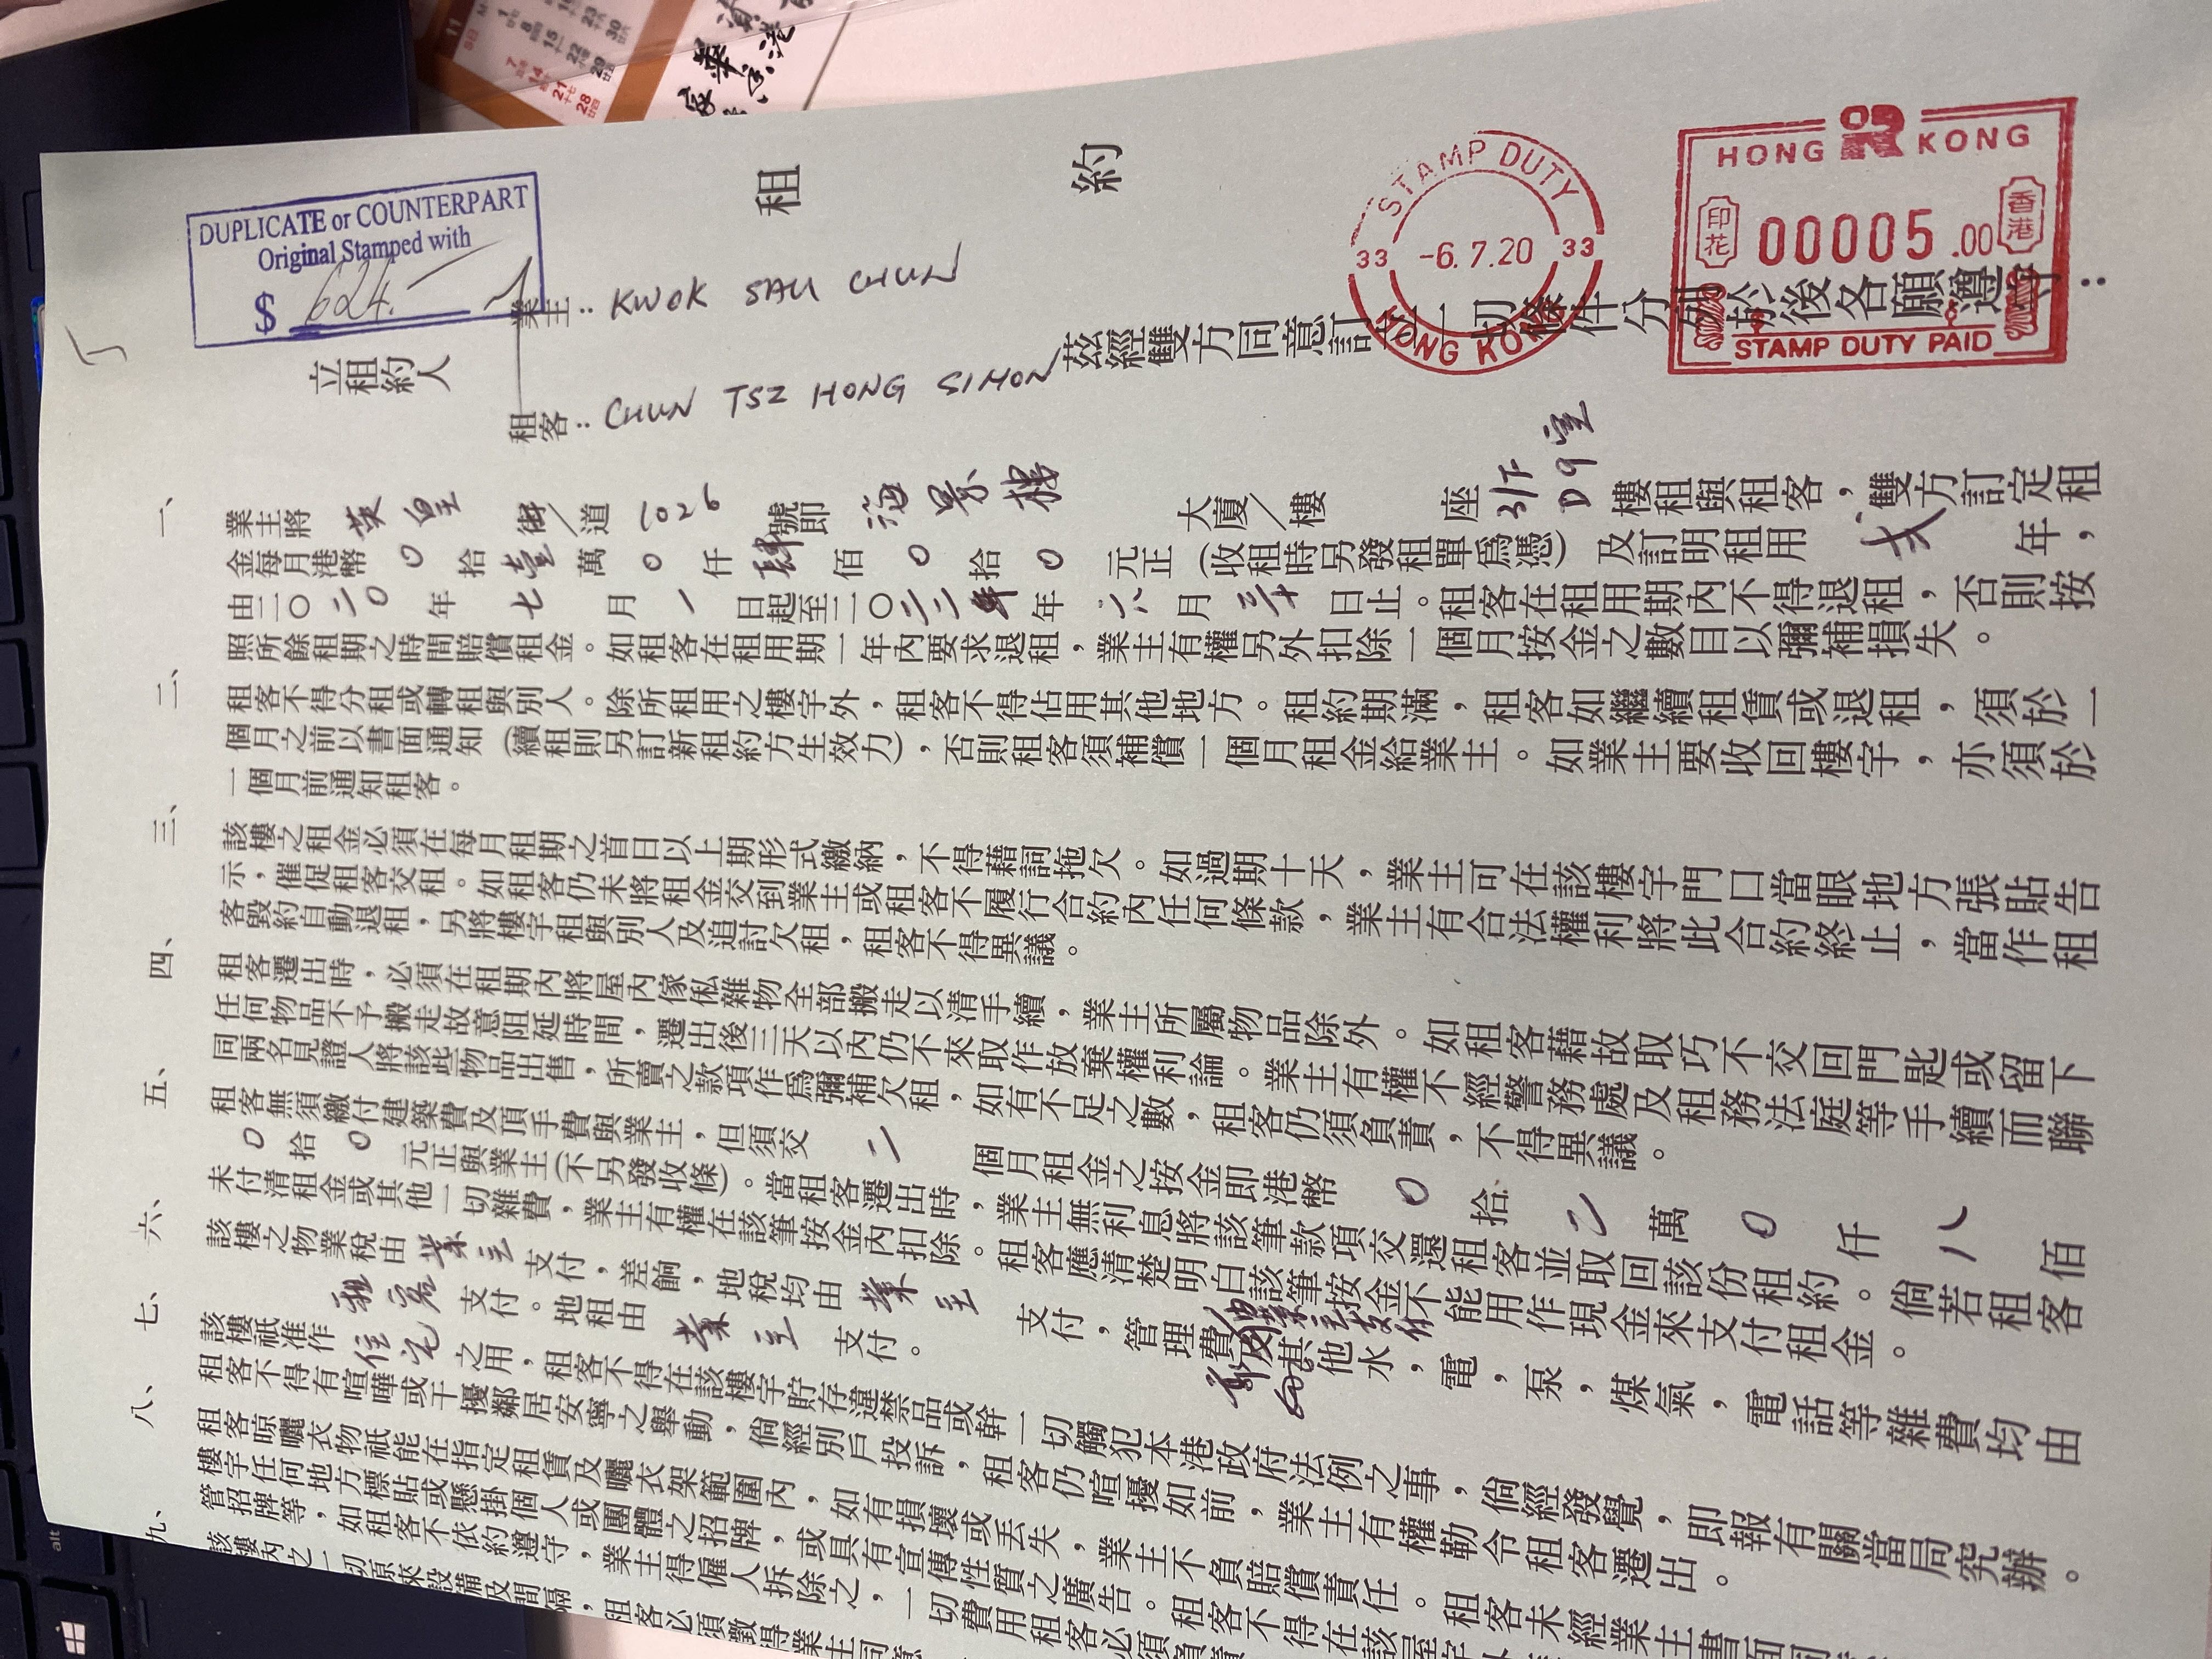 DUPLICATE or COUNTERPART
Original Stamped with
$ 624.
租 約
STAMP DUTY
33 -6.7.20 33
HONG KONG
HONG KONG
印花 00005.00 香港
STAMP DUTY PAID
立租約人
業主: KWOK SAU CHUN
租客: CHUN TSZ HONG SIMON
茲經雙方同意訂立一切條件分列於後各願遵守:
一、業主將 英皇 街/道 號即 海景樓 大廈/樓 座 3/F D9室 樓租與租客,雙方訂定租
金每月港幣 0 拾 壹 萬 0 仟 肆 佰 0 拾 0 元正(收租時另發租單爲憑)及訂明租用 弍 年,
由二〇二0年 七 月 一 日起至二〇二二年 六 月 三十 日止。租客在租用期內不得退租,否則按
照所餘租期之時間賠償租金。如租客在租用期一年內要求退租,業主有權另外扣除一個月按金之數目以彌補損失。
二、租客不得分租或轉租與別人。除所租用之樓宇外,租客不得佔用其他地方。租約期滿,租客如繼續租賃或退租,須於一
個月之前以書面通知(續租則另訂新租約方生效力),否則租客須補償一個月租金給業主。如業主要收回樓宇,亦須於
一個月前通知租客。
三、該樓之租金必須在每月租期之首日以上期形式繳納,不得藉詞拖欠。如過期十天,業主可在該樓宇門口當眼地方張貼告
示,催促租客交租。如租客仍未將租金交到業主或租客不履行合約內任何條款,業主有合法權利將此合約終止,當作租
客毀約自動退租,另將樓宇租與別人及追討欠租,租客不得異議。
四、租客遷出時,必須在租期內將屋內傢俬雜物全部搬走以清手續,業主所屬物品除外。如租客藉故取巧不交回門匙或留下
任何物品不予搬走故意阻延時間,遷出後三天以內仍不來取作放棄權利論。業主有權不經警務處及租務法庭等手續而聯
同兩名見證人將該些物品出售,所賣之款項作爲彌補欠租,如有不足之數,租客仍須負責,不得異議。
五、租客無須繳付建築費及頂手費與業主,但須交 二 個月租金之按金即港幣 0 拾 二 萬 0 仟 八 佰
0 拾 0 元正與業主(不另發收條)。當租客遷出時,業主無利息將該筆款項交還租客並取回該份租約。倘若租客
未付清租金或其他一切雜費,業主有權在該筆按金內扣除。租客應清楚明白該筆按金不能用作現金來支付租金。
六、該樓之物業稅由 業主 支付,差餉,地稅均由 業主 支付,管理費及其他水,電,泵,煤氣,電話等雜費均由
租客 支付。地租由 業主 支付。
七、該樓祇准作 住宅 之用,租客不得在該樓宇貯存違禁品或幹一切觸犯本港政府法例之事,倘經發覺,即報有關當局究辦。
租客不得有喧嘩或干擾鄰居安寧之舉動,倘經別戶投訴,租客仍喧擾如前,業主有權勒令租客遷出。
八、租客晾曬衣物祇能在指定租賃及曬衣架範圍內,如有損壞或丟失,業主不負賠償責任。租客未經業主書面同
樓宇任何地方標貼或懸掛個人或團體之招牌,或具有宣傳性質之廣告。租客不得在該屋宇
管招牌等,如租客不依約遵守,業主得僱人拆除之,一切費用租客必須負責
九、該樓內之一切原來設備及間隔,租客必須徵得業主同意
11
alt